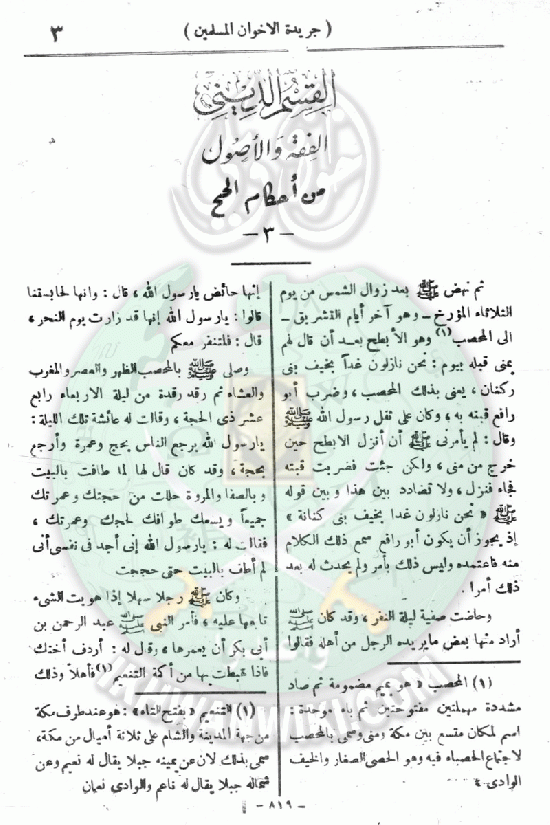 ( جريدة الاخوان المسلمين )
٣
القسم الديني
الفقه والأصول
من أحكام الحج
— ٣ —
ثم نهض ﷺ بعد زوال الشمس من يوم
الثلاثاء المؤرخ ــ وهو آخر أيام التشريق ــ
الى المحصب (١) وهو الأبطح بعد أن قال لهم
بمنى قبله بيوم : نحن نازلون غداً بخيف بنى
ركنان ، يعنى بذلك المحصب ، وضرب أبو
رافع قبته به ، وكان على ثقل رسول الله ﷺ
وقال : لم يأمرنى ﷺ أن أنزل الابطح حين
خرج من منى ، ولكن جئت فضربت قبته
فجاء فنزل ، ولا تضادد بين هذا وبين قوله
ﷺ « نحن نازلون غدا بخيف بنى كنانة »
إذ يجوز أن يكون أبو رافع سمع ذلك الكلام
منه فاعتمده وليس ذلك بأمر ولم يحدث له بعد
ذلك أمرا .
وحاضت صفية ليلة النفر ، وقد كان ﷺ
أراد منها بعض ما يريده الرجل من أهله فقالوا
(١) المحصب « هو بميم مضمومة ثم صاد
مشددة مهملتين مفتوحتين ثم باء موحدة :
اسم لمكان متسع بين مكة ومنى وسمى بالمحصب
لاجتماع الحصباء فيه وهو الحصى الصغار والخيف
الوادى »
إنها حائض يا رسول الله ، قال : وانها لحابستنا
قالوا : يا رسول الله إنها قد زارت يوم النحر ،
قال : فلتنفر معكم
وصلى ﷺ بالمحصب الظهر والعصر والمغرب
والعشاء ثم رقد رقدة من ليلة الاربعاء رابع
عشر ذى الحجة ، وقالت له عائشة تلك الليلة :
يا رسول الله يرجع الناس بحج وعمرة وأرجع
بحجة ، وقد كان قال لها لما طافت بالبيت
وبالصفا والمروة حللت من حجتك وعمرتك
جميعاً ويسعك طوافك لحجك وعمرتك ،
فقالت له : يا رسول الله إنى أجد فى نفسى أنى
لم أطف بالبيت حتى حججت
وكان ﷺ رجلا سهلا إذا هويت الشىء
تابعها عليه ، فأمر النبى ﷺ عبد الرحمن بن
أبى بكر أن يعمرها ، وقال له : أردف أختك
فاذا هبطت بها من أكمة التنعيم (١) فأهلا وذلك
(١) التنعيم « بفتح التاء » : هو عند طرف مكة
من جهة المدينة والشام على ثلاثة أميال من مكة ،
سمى بذلك لان عن يمينه جبلا يقال له نعيم وعن
شماله جبلا يقال له ناعم والوادى نعمان
— ٨١٩ —